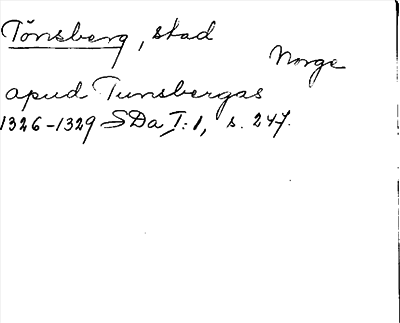 Tönsberg, stad
Norge
apud Tunsbergas
1326-1329 SDa I:1, s. 247.